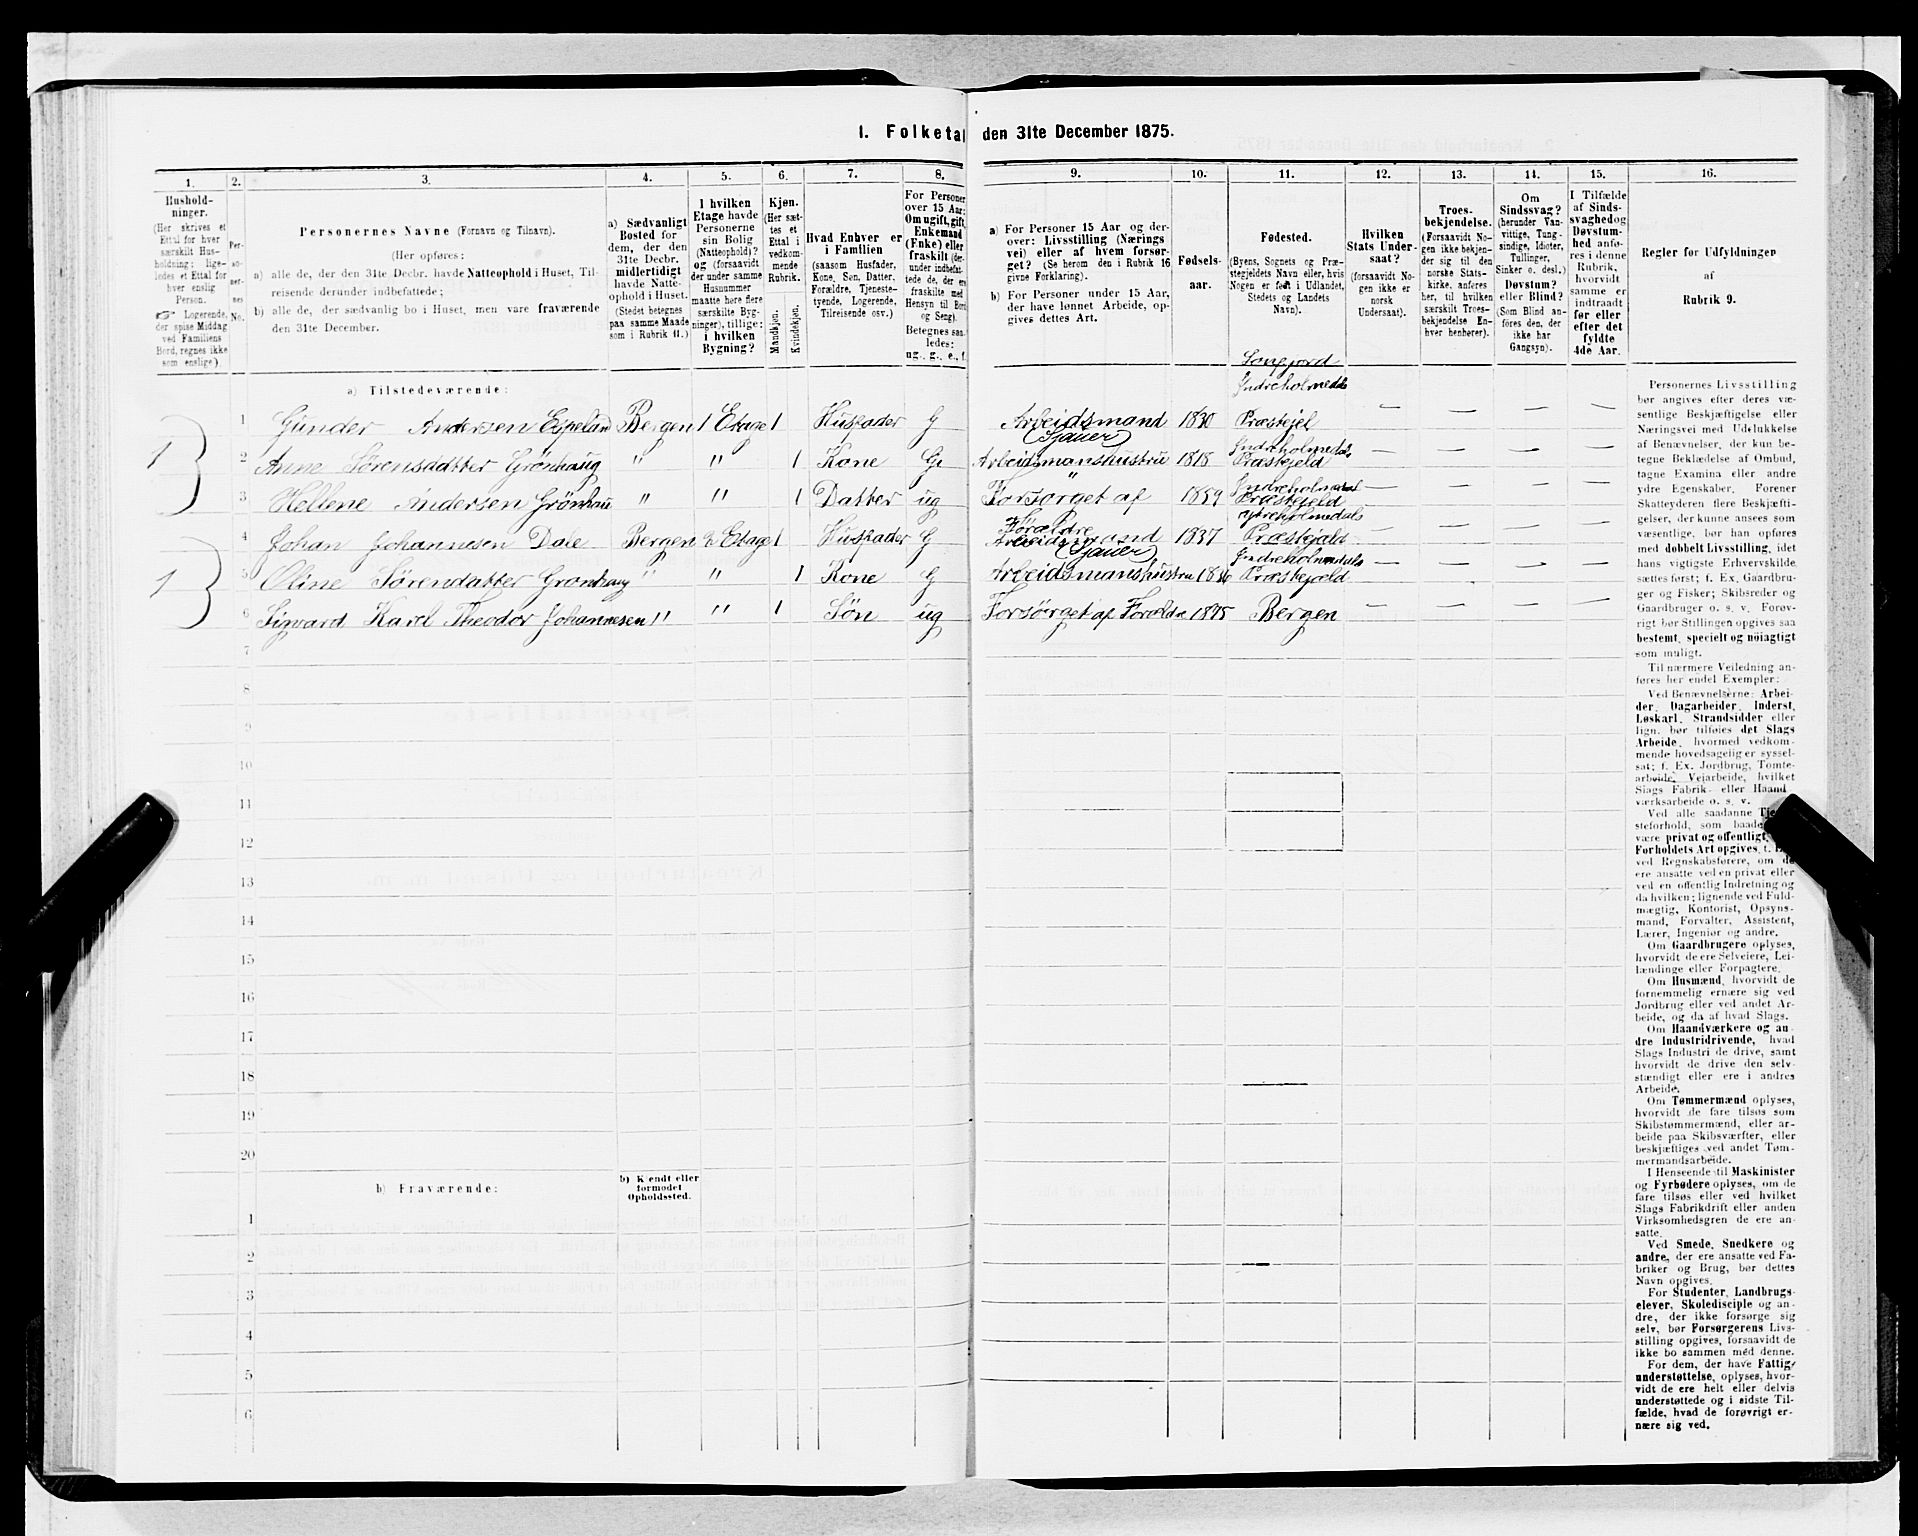 1. Folketal den 31te December 1875.
1. 2. 3. 4. 5. 6. 7. 8. 9. 10. 11. 12. 13. 14. 15. 16.
Hushold-
ninger.
(Her skrives et
Ettal for hver
særskilt Hus-
holdning; lige-
ledes et Ettal for
hver enslig
Person.
☞ Logerende,
der spise Middag
ved Familiens
Bord, regnes ikke
som enslige).
Per-
so-
ner-
nes
No.
Personernes Navne (Fornavn og Tilnavn).
(Her opføres:
a) alle de, der den 31te Decbr. havde Natteophold i Huset, Til-
reisende derunder indbefattede;
b) alle de, der sædvanlig bo i Huset, men vare fraværende
den 31te December.
a) Sædvanligt
Bosted for
dem, der den
31te Decbr.
midlertidigt
havde Natte-
ophold i Huset.
(Stedet betegnes
paa samme Maade
som i Rubrik 11.)
I hvilken
Etage havde
Personerne
sin Bolig
(Natteophold)?
og (forsaavidt
der under samme
Husnummer
maatte høre flere
særskilte Byg-
ninger), tillige:
i hvilken
Bygning?
Kjøn.
(Her sæt-
tes et
Ettal i
vedkom-
mende
Rubrik.
Mandkjøn.
Kvindekjøn.
Hvad Enhver er
i Familien
(saasom Husfader,
Kone, Søn, Datter,
Forældre, Tjeneste-
tyende, Logerende,
Tilreisende osv.)
For Personer
over 15 Aar:
Om ugift, gift,
Enkemand
(Enke) eller
fraskilt (der-
under indbefat-
tede de, der ere
fraskilte med
Hensyn til Bord
og Seng).
Betegnes saa-
ledes:
ug., g., e., f.
a) For Personer 15 Aar og der-
over: Livsstilling (Nærings
vei) eller af hvem forsør-
get? (Se herom den i Rubrik 16
givne Forklaring).
b) For Personer under 15 Aar,
der have lønnet Arbeide, op-
gives dettes Art.
Fødsels-
aar.
Fødested.
(Byens, Sognets og Præ-
stegjeldets Navn eller, hvis
Nogen er født i Udlandet,
Stedets og Landets
Navn).
Hvilken
Stats Under-
saat?
(forsaavidt No-
gen ikke er
norsk
Undersaat).
Troes-
bekjendelse.
(Forsaavidt No-
gen ikke bekjen-
der sig til den
norske Stats-
kirke, anføres
her, til hvilken
særskilt Troes-
bekjendelse En-
hver henhører).
Om
Sindssvag?
(herunder Van-
vittige, Tung-
sindige, Idioter,
Tullinger,
Sinker o. desl.)
Døvstum?
eller Blind?
(Som Blind an-
føres den, der
ikke har
Gangsyn).
I Tilfælde
af Sinds-
svaghed og
Døvstum-
hed anfø-
res i denne
Rubrik,
hvorvidt
samme er
indtraadt
før eller
efter det
fyldte
4de Aar.
Regler for Udfyldningen
af
Rubrik 9.
a) Tilstedeværende:
Søngfjord
Indreholmedals
1 Gunder Andersen Espeland Bergen 1 Etage 1 Husfader G Arbeidsmand (Sjauer) 1830 Præstejel — — — —
1 2 Anne Sørensdatter Grønhaug " " 1 Kone G Arbeidsmanshustru 1818 Indreholmedals Præstejeld — — — —
3 Hellene Andersen Grønhau " " 1 Datter ug Forsørget af Forældre 1859 Indreholmedal Præstejeld — — — —
4 Johan Johannesen Dale Bergen 2 Etage 1 Husfader G Arbeidsmand (Sjauer) 1837 ytreholmedals Præstejald — — — —
1 5 Oline Sørendatter Grønhaug " " 1 Kone G Arbeidsmanshustru Indreholmedals Præstejeld — — — —
6 Sigvard Karel Theodor Johannesen " " 1 Søn ug Forsørget af Forældre 1875 Bergen — — — —
7
8
9
10
11
12
13
14
15
16
17
18
19
20
b) Fraværende:
b) Kjendt eller
formodet
Opholdssted.
1
2
3
4
5
6
Personernes Livsstilling
bør angives efter deres væ-
sentlige Beskjæftigelse eller
Næringsvei med Udelukkelse
af Benævnelser, der kun be-
tegne Beklædelse af Ombud,
tagne Examina eller andre
ydre Egenskaber. Forener
Skatteyderen flere Beskjæfti-
gelser, der kunne ansees som
væsentlige, bør han opføres
med dobbelt Livsstilling, idet
hans vigtigste Erhvervskilde
sættes først; f. Ex. Gaardbru-
ger og Fisker; Skibsreder og
Gaardbruger o. s. v. Forøv-
rigt bør Stillingen opgives saa
bestemt, specielt og nøiagtigt
som muligt.
Til nærmere Veiledning an-
føres her endel Exempler:
Ved Benævnelserne: Arbei-
der, Dagarbeider, Inderst,
Løskarl, Strandsidder eller
lign. bør tilføies det Slags
Arbeide, hvormed vedkom-
mende hovedsagelig er syssel-
sat; f. Ex. Jordbrug, Tomte-
arbeide, Veiarbeide, hvilket
Slags Fabrik- eller Haand-
værksarbeide o. s. v.
Ved alle saadanne
steforhold, som baade
være privat og offentligt,
Forholdets Art opgives, t.
ved Regnskabsførere, om de
ere ansatte ved en privat eller
ved en offentlig Indretning og
da hvilken; lignende ved Fuld-
mægtig, Kontorist, Opsyns-
mand, Forvalter, Assistent,
Lærer, Ingeniør og andre.
Om Gaardbrugere oplyses,
hvorvidt de ere Selveiere, Lei-
lændinge eller Forpagtere.
Om Husmænd, hvorvidt de
fornemmelig ernære sig ved
Jordbrug eller ved andet Ar-
beide, og da af hvad Slags.
Om Haandværkere og an-
dre Industridrivende, hvad
Slags Industri de drive, samt
hvorvidt de drive den selv-
stændigt eller ere i andres
Arbeide.
Om Tømmermænd oplyses,
hvorvidt de fare tilsøs som
Skibstømmermænd, eller ar-
beide paa Skibsværfter, eller
beskjæftiges ved andet Tøm-
mermandsarbeide.
I Henseende til Maskinister
og Fyrbødere oplyses, om de
fare tilsøs eller ved hvilket
Slags Fabrikdrift eller anden
Virksomhedsgren de ere an-
satte.
Ved Smede, Snedkere og
andre, der ere ansatte ved Fa-
briker og Brug, bør dettes
Navn opgives.
For Studenter, Landbrugs-
elever, Skoledisciple og an-
dre, der ikke forsørge sig
selv, bør Forsørgerens Livs-
stilling opgives, forsaavidt de
ikke bo sammen med denne.
For dem, der have Fattig-
understøttelse, oplyses, hvor-
vidt de ere helt eller delvis
understøttede og i sidste Til-
fælde, hvad de forøvrigt er-
nære sig ved.